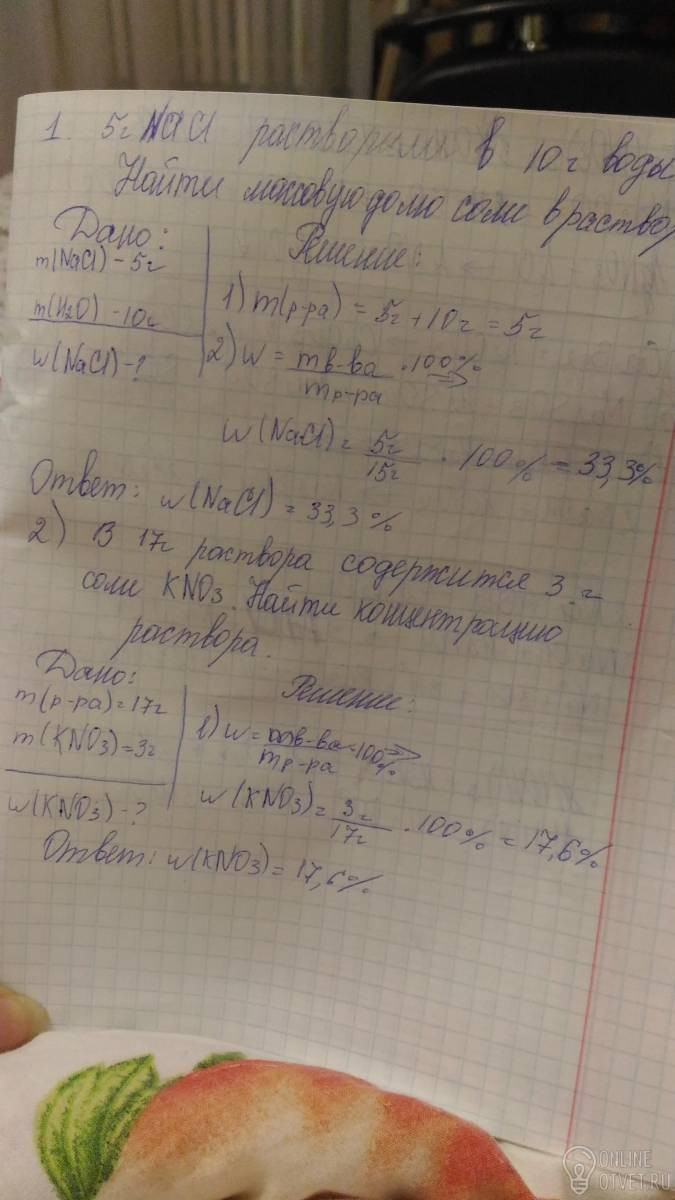 1. 5г NaCl растворили в 10г воды
Найти массовую долю соли в раствор
Дано:
m(NaCl) - 5г
m(H₂O) - 10г
w(NaCl) - ?
Решение:
1) m(р-ра) = 5г + 10г = 5г
2) w = mв-ва / mр-ра · 100% ⇒
w(NaCl) = 5г / 15г · 100% = 33,3%
Ответ: w(NaCl) = 33,3%
2) В 17г раствора содержится 3 г
соли KNO₃. Найти концентрацию
раствора.
Дано:
m(р-ра) = 17г
m(KNO₃) = 3г
w(KNO₃) - ?
Решение:
1) w = mв-ва / mр-ра · 100% ⇒
w(KNO₃) = 3г / 17г · 100% = 17,6%
Ответ: w(KNO₃) = 17,6%
ONLINE
OTVET.RU